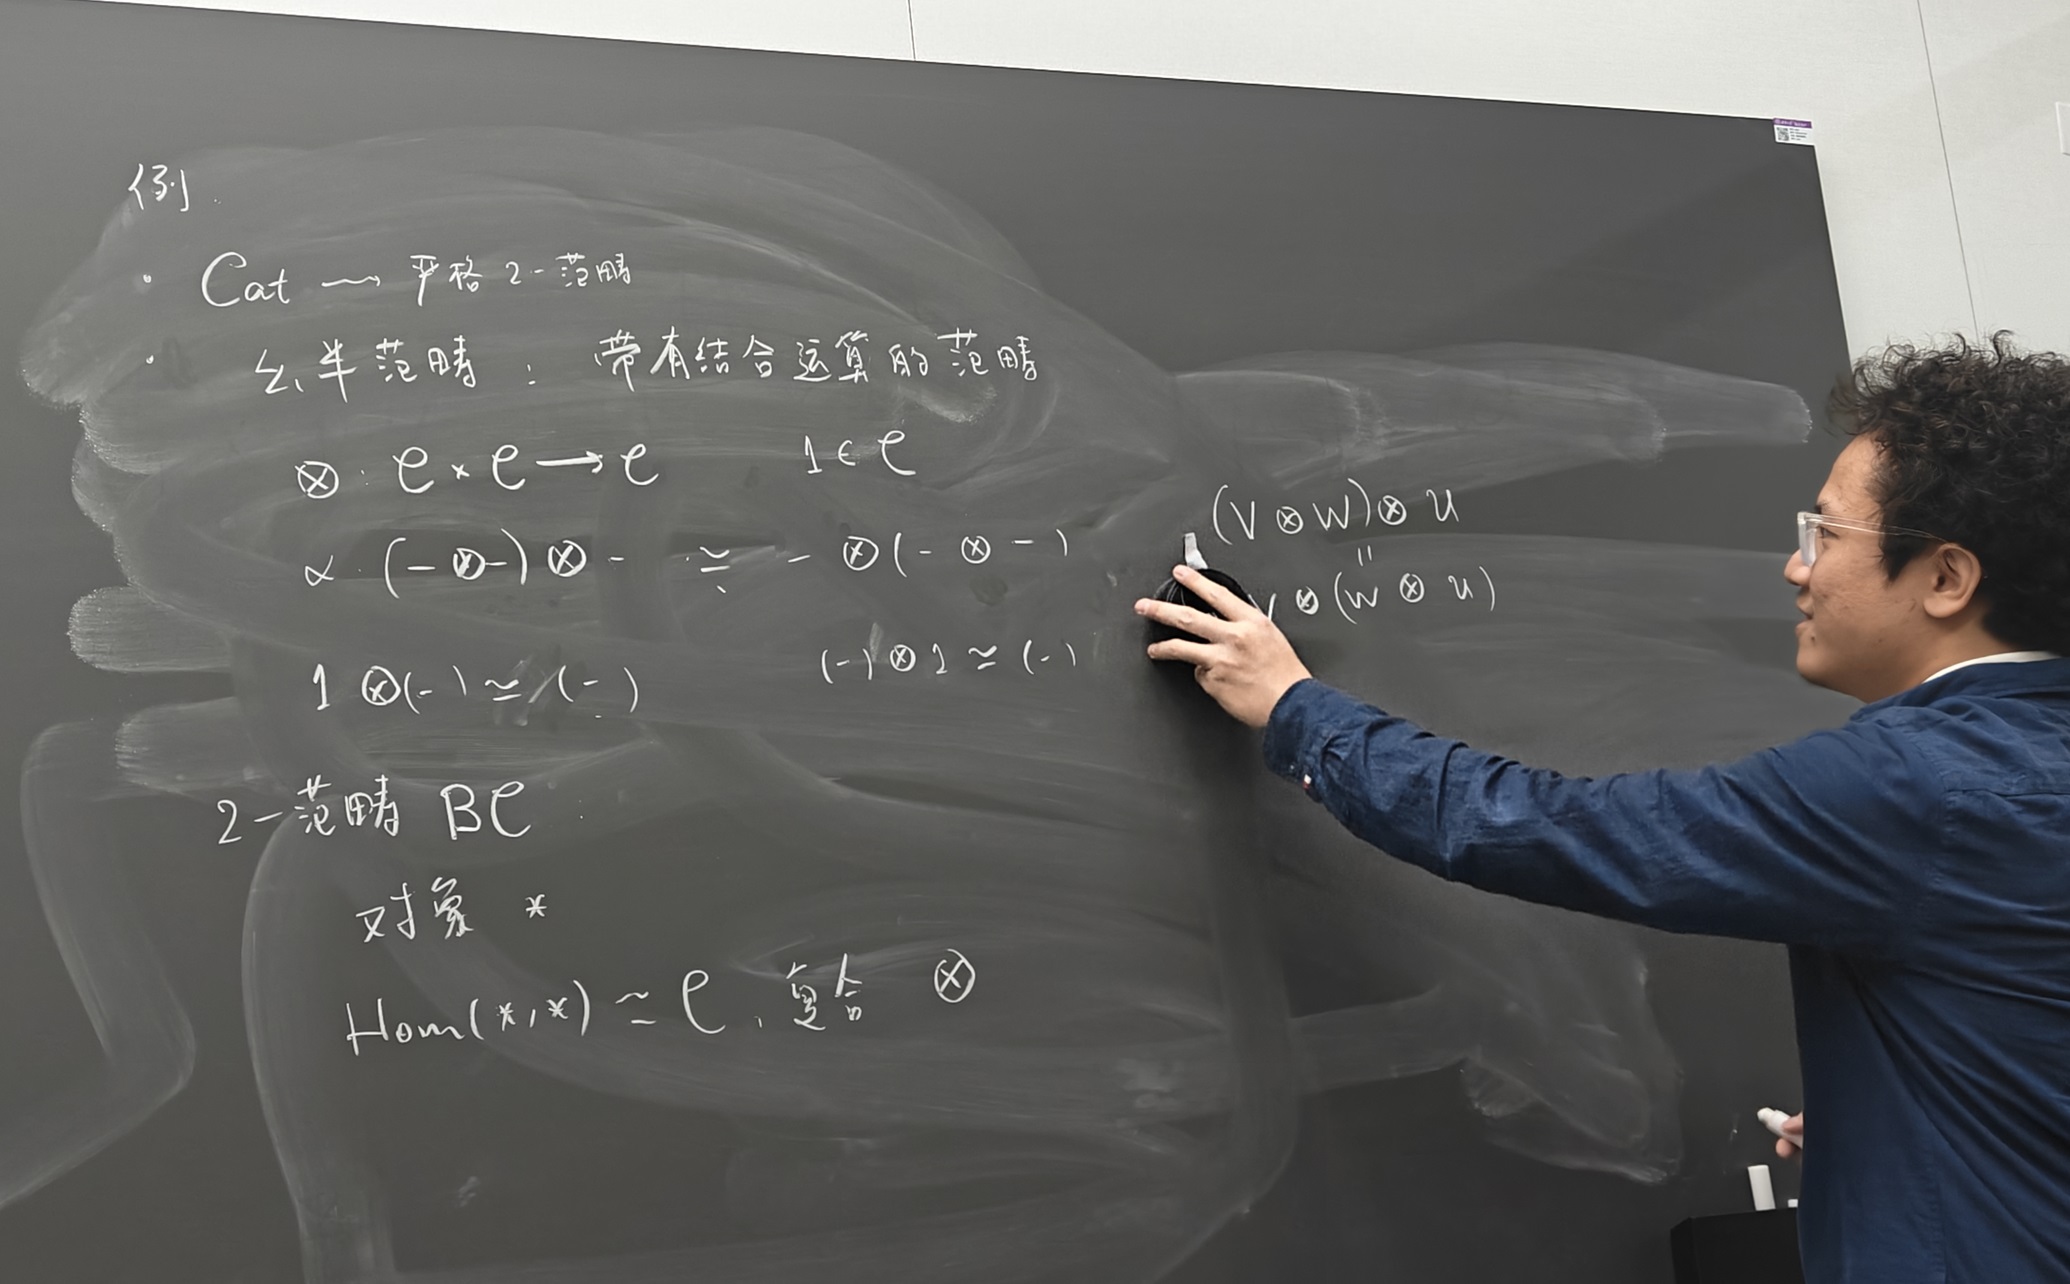 例.
· Cat ⟿ 严格 2-范畴
· 幺半范畴 : 带有结合运算的范畴
⊗ : C × C ⟶ C 1 ∈ C
α : (-⊗-) ⊗ - ≃ - ⊗ (- ⊗ -)
(V ⊗ W) ⊗ U
=
V ⊗ (W ⊗ U)
1 ⊗ (-) ≃ (-) (-) ⊗ 1 ≃ (-)
2-范畴 BC
对象 *
Hom(*,*) ≃ C, 复合 ⊗